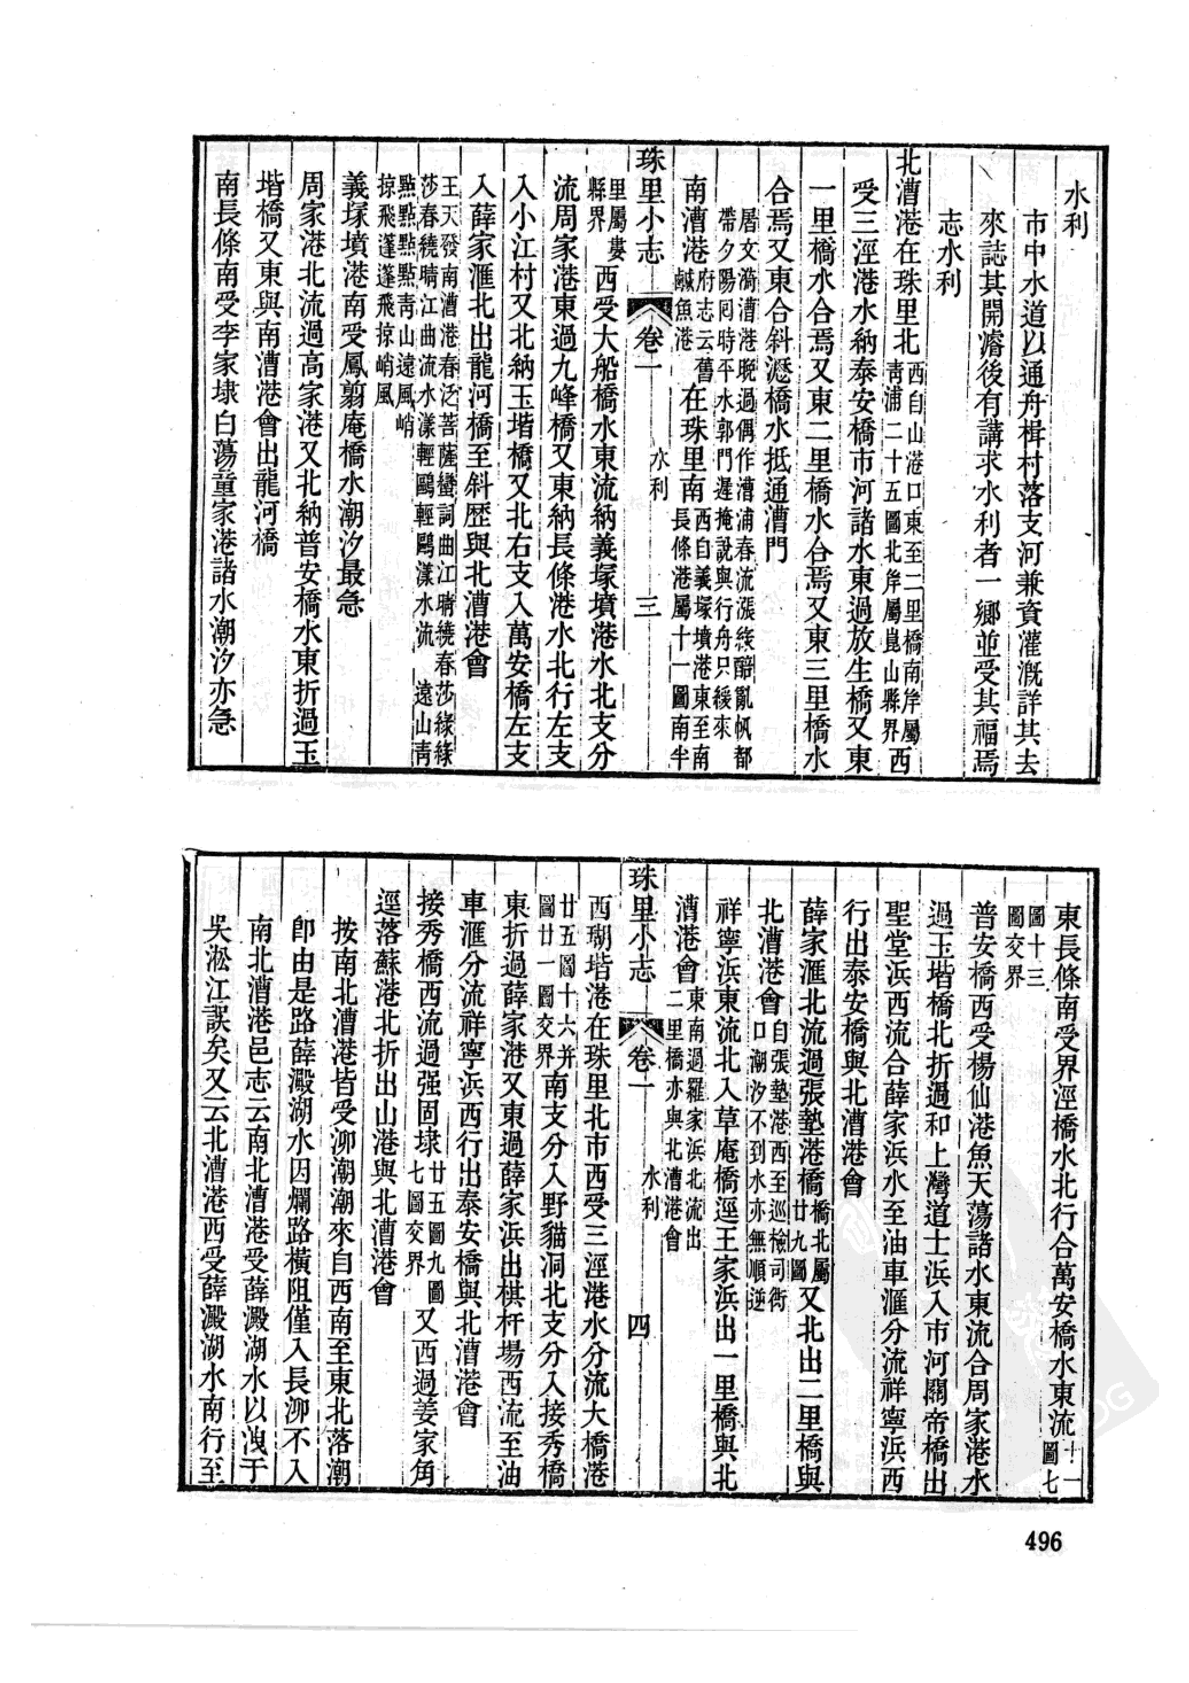 水利
市中水道以通舟楫村落支河兼資灌漑詳其去
來誌其開濬後有講求水利者一鄉並受其福焉
志水利
北漕港在珠里北西自山港口東至二里橋南岸屬青浦二十五圖北岸屬崑山縣界西
受三涇港水納泰安橋市河諸水東過放生橋又東
一里橋水合焉又東二里橋水合焉又東三里橋水
合焉又東合斜瀝橋水抵通漕門
屠文漪漕港晚過偶作漕浦春流漲綠醅亂帆都
帶夕陽囘時平水郭門遲掩說與行舟只緩來
南漕港府志云舊鹹魚港在珠里南西自義塚墳港東至南長條港屬十一圖南半
珠里小志 卷一 水利 三
里屬婁縣界西受大船橋水東流納義塚墳港水北支分
流周家港東過九峰橋又東納長條港水北行左支
入小江村又北納玉堦橋又北右支入萬安橋左支
入薛家滙北出龍河橋至斜歷與北漕港會
王天發南漕港春泛菩薩蠻詞曲江晴繞春莎綠綠
莎春繞晴江曲流水漾輕鷗輕鷗漾水流 遠山靑
點點點點靑山遠風峭
掠飛蓬蓬飛掠峭風
義塚墳港南受鳳翦庵橋水潮汐最急
周家港北流過高家港又北納普安橋水東折過玉
堦橋又東與南漕港會出龍河橋
南長條南受李家埭白蕩童家港諸水潮汐亦急
東長條南受界涇橋水北行合萬安橋水東流十一圖七
圖十三圖交界
普安橋西受楊仙港魚天蕩諸水東流合周家港水
過玉堦橋北折過和上灣道士浜入市河關帝橋出
聖堂浜西流合薛家浜水至油車滙分流祥寧浜西
行出泰安橋與北漕港會
薛家滙北流過張墊港橋橋北屬廿九圖又北出二里橋與
北漕港會自張墊港西至巡檢司衙口潮汐不到水亦無順逆
祥寧浜東流北入草庵橋逕王家浜出一里橋與北
漕港會東南過羅家浜北流出二里橋亦與北漕港會
珠里小志 卷一 水利 四
西瑚堦港在珠里北市西受三涇港水分流大橋港
廿五圖十六并圖廿一圖交界南支分入野貓洞北支分入接秀橋
東折過薛家港又東過薛家浜出棋杆場西流至油
車滙分流祥寧浜西行出泰安橋與北漕港會
接秀橋西流過强固埭廿五圖九圖七圖交界又西過姜家角
逕落蘇港北折出山港與北漕港會
按南北漕港皆受泖潮潮來自西南至東北落潮
卽由是路薛澱湖水因爛路橫阻僅入長泖不入
南北漕港邑志云南北漕港受薛澱湖水以洩于
吳淞江誤矣又云北漕港西受薛澱湖水南行至
496